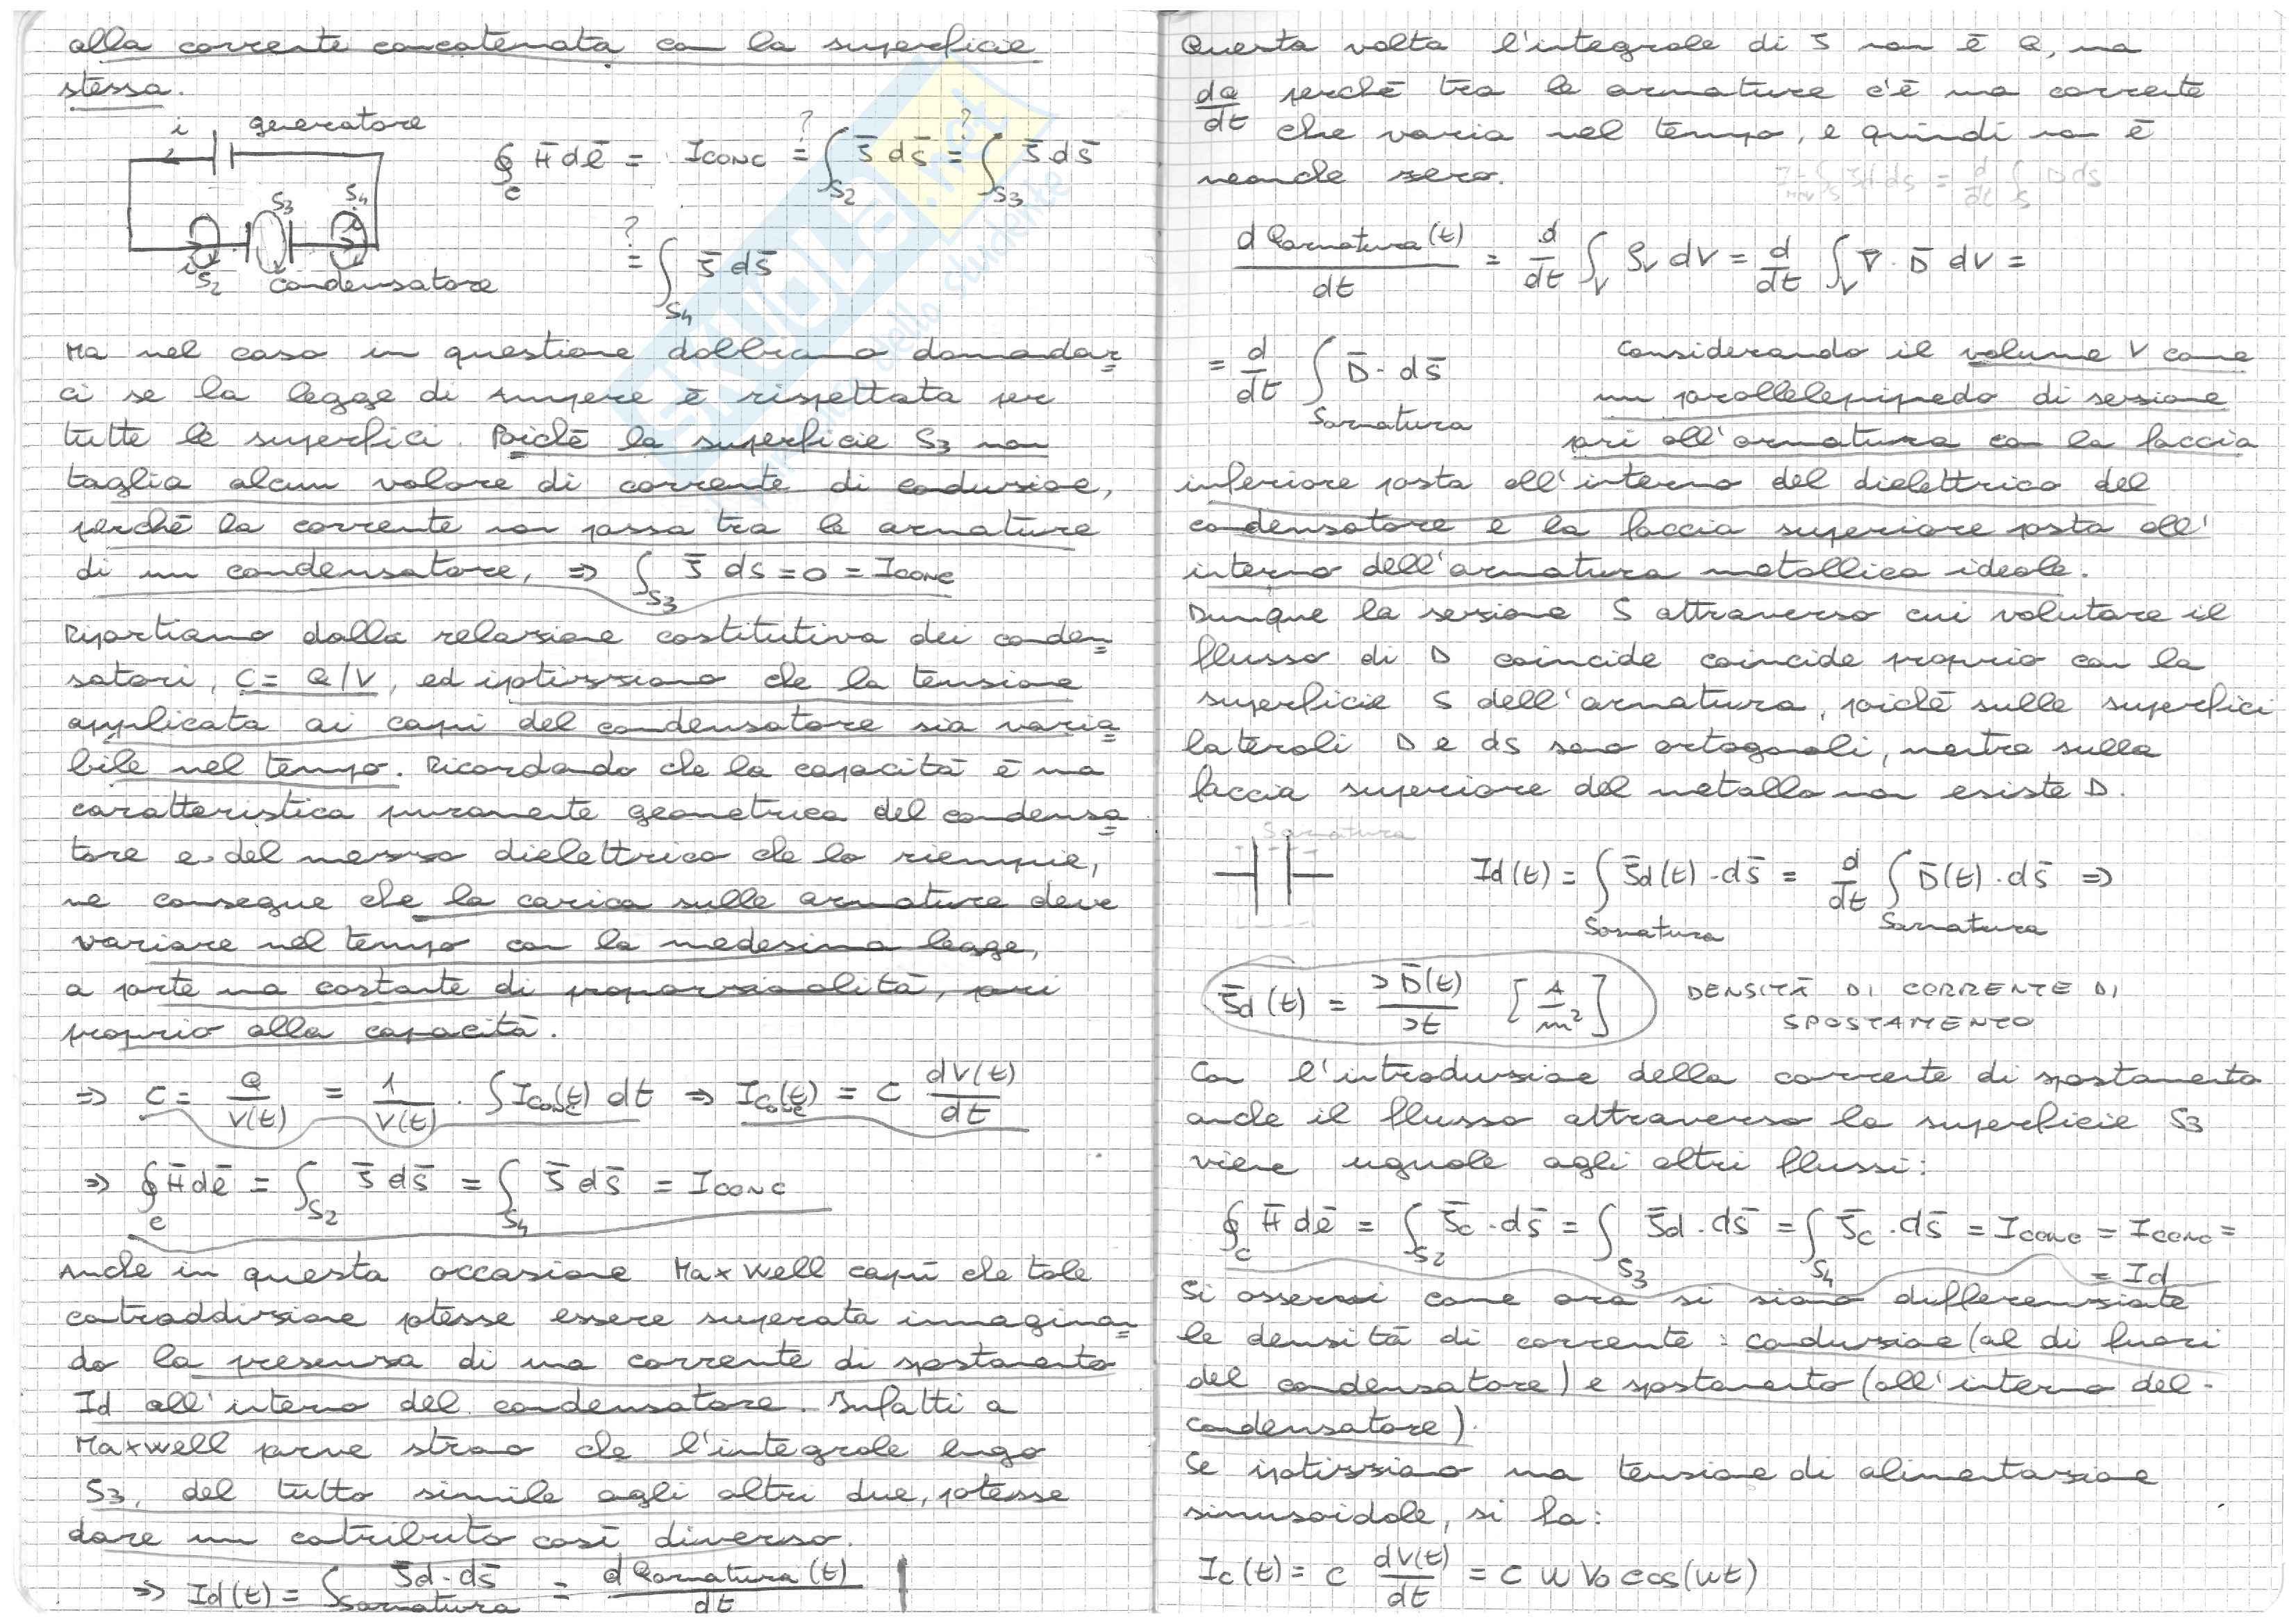 alla corrente concatenata con la superficie
stessa.
i generatore
∮c H̄ dℓ̄ = Iconc =? ∫S2 J̄ ds̄ =? ∫S3 J̄ ds̄
=? ∫S4 J̄ ds̄
S3 S4 i
i S2 condensatore
Ma nel caso in questione dobbiamo domandar=
ci se la legge di Ampere è rispettata per
tutte le superfici. Poichè la superficie S3 non
taglia alcun valore di corrente di conduzione,
perchè la corrente non passa tra le armature
di un condensatore, ⇒ ∫S3 J̄ ds = 0 = Iconc
Ripartiamo dalla relazione costitutiva dei conden=
satori, C = Q/V, ed ipotizziamo che la tensione
applicata ai capi del condensatore sia varia=
bile nel tempo. Ricordando che la capacità è una
caratteristica puramente geometrica del condensa=
tore e del mezzo dielettrico che lo riempie,
ne consegue che la carica sulle armature deve
variare nel tempo con la medesima legge,
a parte una costante di proporzionalità, pari
proprio alla capacità.
⇒ C = Q/V(t) = 1/V(t) · ∫Iconc(t) dt ⇒ Iconc(t) = C dV(t)/dt
⇒ ∮c H̄ dℓ̄ = ∫S2 J̄ ds̄ = ∫S4 J̄ ds̄ = Iconc
Anche in questa occasione Maxwell capì che tale
contraddizione potesse essere superata immaginan=
do la presenza di una corrente di spostamento
Id all'interno del condensatore. Infatti a
Maxwell parve strano che l'integrale lungo
S3, del tutto simile agli altri due, potesse
dare un contributo così diverso.
⇒ Id(t) = ∫Sarmatura J̄d · ds̄ = dQarmatura(t)/dt
Questa volta l'integrale di J non è Q, ma
dQ/dt perchè tra le armature c'è una corrente
che varia nel tempo, e quindi non è
neanche zero.
∫S Jd ds = d/dt ∫S D ds
dQarmatura(t)/dt = d/dt ∫V ρv dV = d/dt ∫V ∇̄ · D̄ dV =
= d/dt ∫Sarmatura D̄ · ds̄
Considerando il volume V come
un parallelepipedo di sezione
pari all'armatura con la faccia
inferiore posta all'interno del dielettrico del
condensatore e la faccia superiore posta all'
interno dell'armatura metallica ideale.
Dunque la sezione S attraverso cui valutare il
flusso di D coincide coincide proprio con la
superficie S dell'armatura, poichè sulle superfici
laterali D e ds sono ortogonali, mentre sulla
faccia superiore del metallo non esiste D.
Sarmatura
Id(t) = ∫Sarmatura J̄d(t) · ds̄ = d/dt ∫Sarmatura D̄(t) · ds̄ ⇒
J̄d(t) = ∂D̄(t)/∂t [A/m²] DENSITÀ DI CORRENTE DI
SPOSTAMENTO
Con l'introduzione della corrente di spostamento
anche il flusso attraverso la superficie S3
viene uguale agli altri flussi:
∮c H̄ dℓ̄ = ∫S2 J̄c · ds̄ = ∫S3 J̄d · ds̄ = ∫S4 J̄c · ds̄ = Iconc = Iconc =
= Id
Si osservi come ora si siano differenziate
le densità di corrente: conduzione (al di fuori
del condensatore) e spostamento (all'interno del
condensatore).
Se ipotizziamo una tensione di alimentazione
sinusoidale, si ha:
Ic(t) = C dV(t)/dt = C ω V0 cos(ωt)